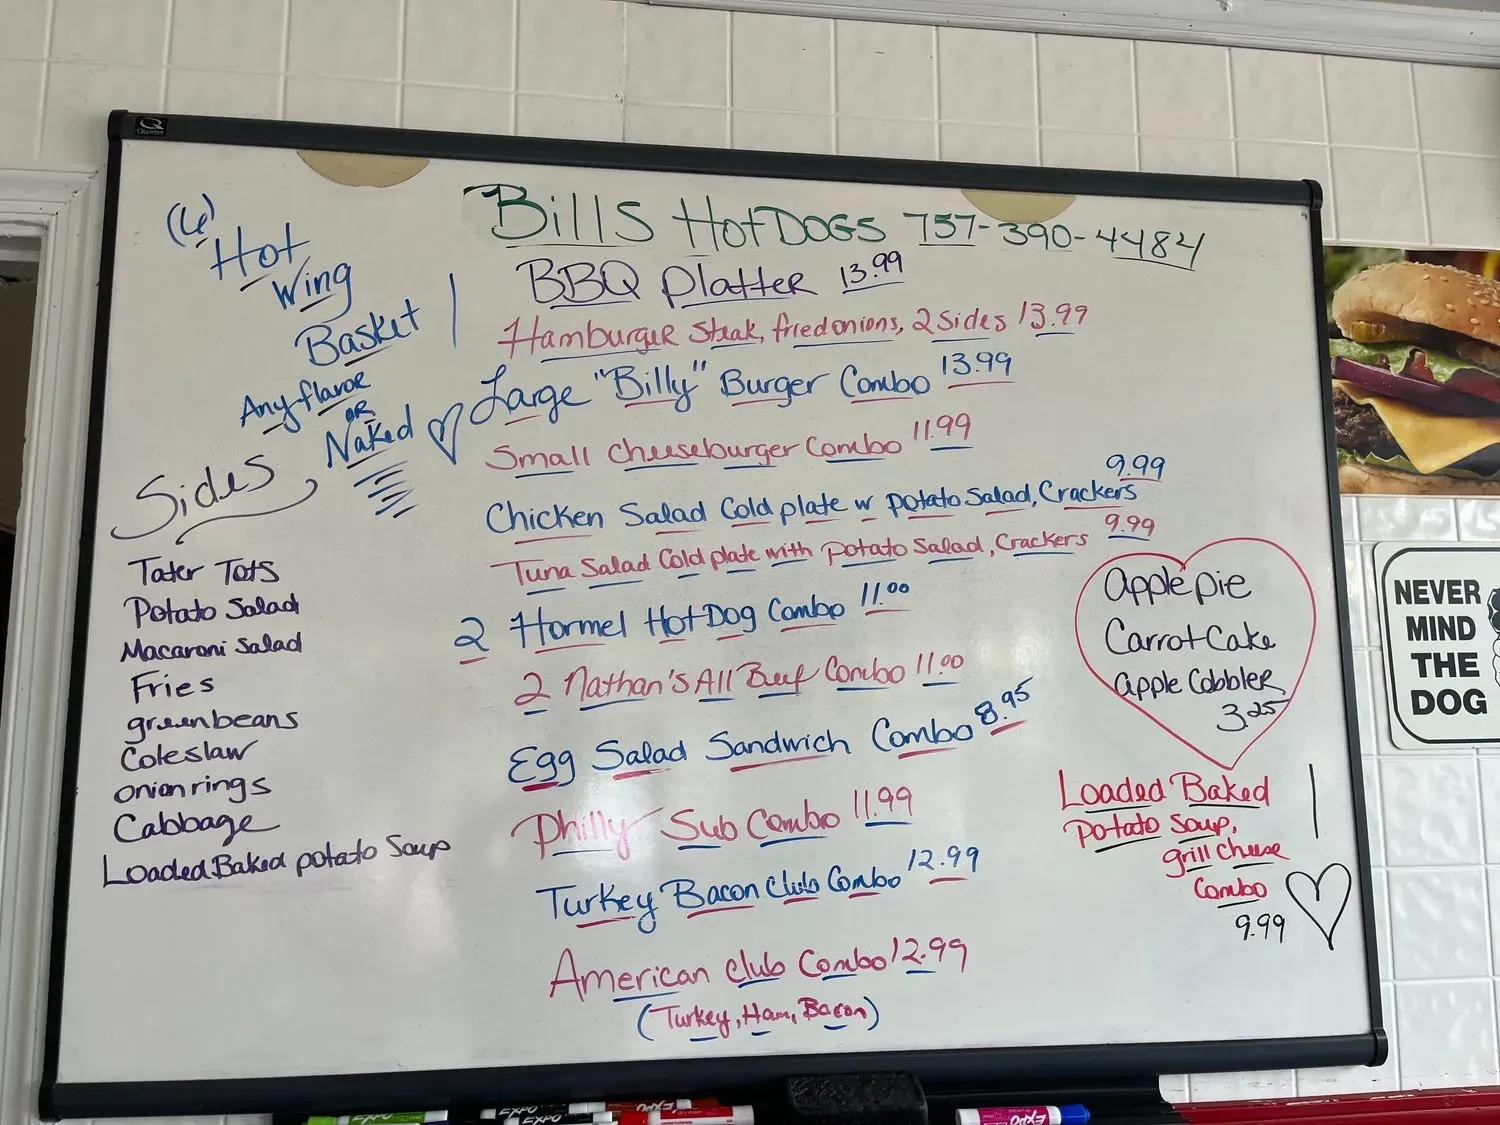 Quartet
Bills HotDOGS 757-390-4484
(6)
Hot
Wing
Basket
Any flavor
OR
Naked
BBQ Platter 13.99
Hamburger Steak, fried onions, 2 Sides 13.99
Large "Billy" Burger Combo 13.99
Small Cheeseburger Combo 11.99
9.99
Chicken Salad Cold plate w potato Salad, Crackers
Tuna Salad Cold plate with potato Salad, Crackers 9.99
2 Hormel HotDog Combo 11.00
2 Nathan's All Beef Combo 11.00
Egg Salad Sandwich Combo 8.95
Philly Sub Combo 11.99
Turkey Bacon Club Combo 12.99
American Club Combo 12.99
(Turkey, Ham, Bacon)
Sides
Tater Tots
Potato Salad
Macaroni Salad
Fries
greenbeans
Coleslaw
onion rings
Cabbage
Loaded Baked potato Soup
Apple pie
Carrot Cake
apple Cobbler
3.25
Loaded Baked
potato Soup,
grill cheese
Combo
9.99
NEVER
MIND
THE
DOG
EXPO
EXPO
EXPO
EXPO